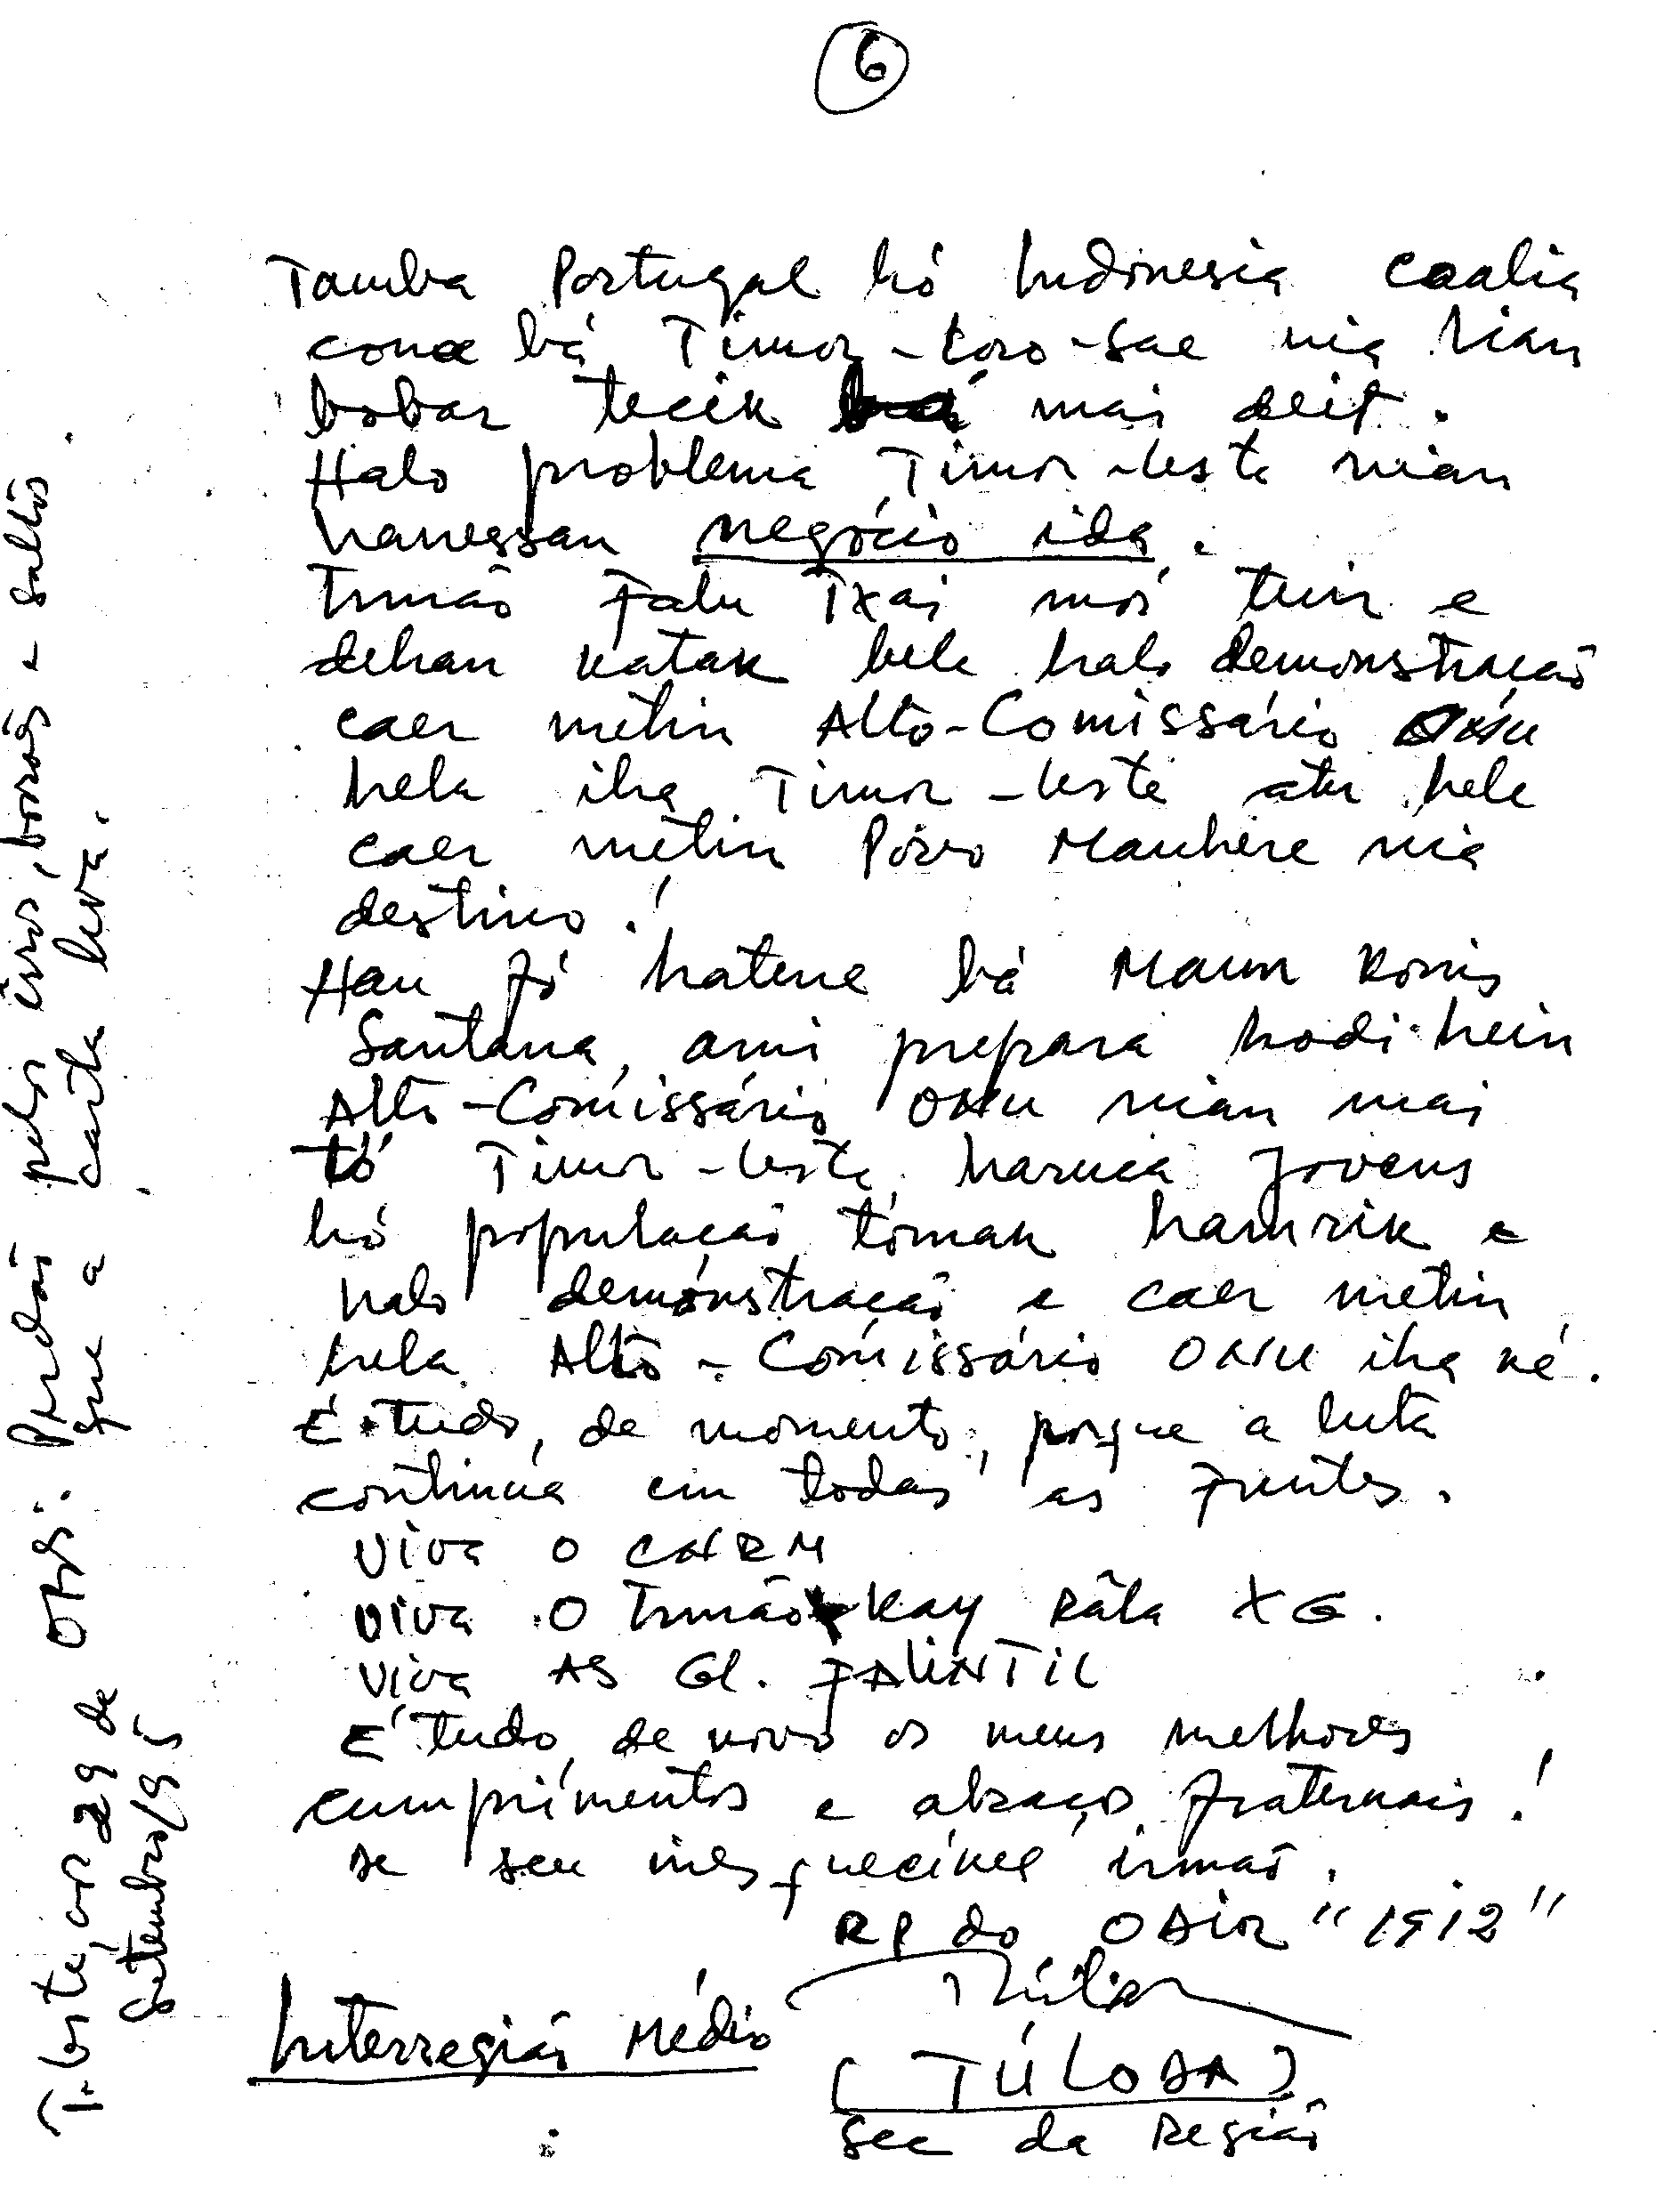 6
Tamba Portugal hó Indonesia coalia
cona bá Timor-loro-sae nia lian
bobar tecik mai deit.
Halo problema Timor-Leste nian
hanessan negócio ida.
Irmão Falu Txai mós tuir e
dehan katak bele halo demonstração
caer metin Alto-Comissário ONU
hela iha Timor-Leste atu bele
caer metin Povo Maubere nia
destino!
Hau fó hatene bá Maun Konis
Santana, ami prepara hodi hein
Alto-Comissário ONU nian mai
tó Timor-Leste, haruca jovens
hó população tomak hamrik e
halo demonstração e caer metin
hela Alto-Comissário ONU iha né.
É tudo, de momento, porque a luta
continua em todas as frentes.
Viva o CNRM
Viva O Irmão Kay Râla XG.
Viva AS Gl. FALINTIL
É tudo, de novo os meus melhores
cumprimentos e abraços fraternais!
de seu inesquecível irmão.
RP do ODIR "1912"
Interregião Médio
(TÚLODA)
Sec da Região
T-Leste, aos 29 de
Setembro/95
OBS: Perdão pelos erros, borrões e saltos
que a carta leva.